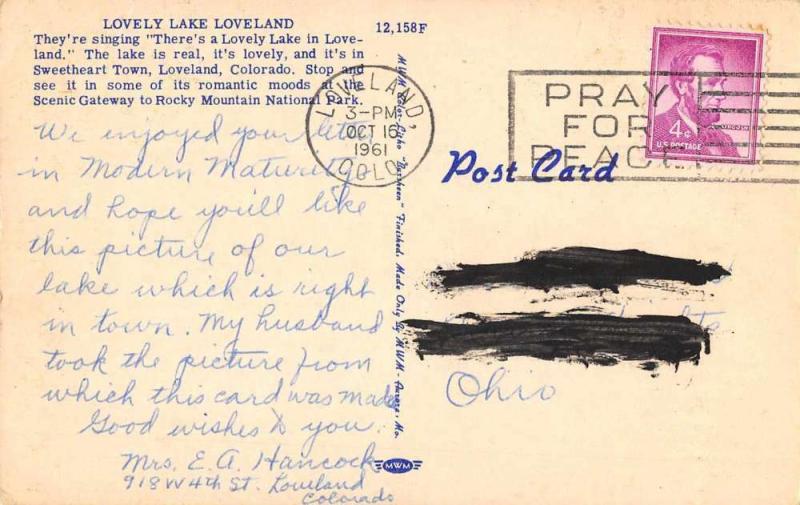 LOVELY LAKE LOVELAND
They're singing "There's a Lovely Lake in Love-
land." The lake is real, it's lovely, and it's in
Sweetheart Town, Loveland, Colorado. Stop and
see it in some of its romantic moods at the
Scenic Gateway to Rocky Mountain National Park.
12,158F
We enjoyed your letter
in Modern Maturity
and hope you'll like
this picture of our
lake which is right
in town. My husband
took the picture from
which this card was made
Good wishes to you.
Mrs. E. A. Hancock
918 W 4th St. Loveland
Colorado
MWM Color-Litho "Marheen" Finished. Made Only By MWM - Aurora, Mo.
MWM
LOVELAND,
3-PM
OCT 16
1961
COLO.
PRAY
FOR
PEACE
4¢
LINCOLN
U.S. POSTAGE
Post Card
Ohio